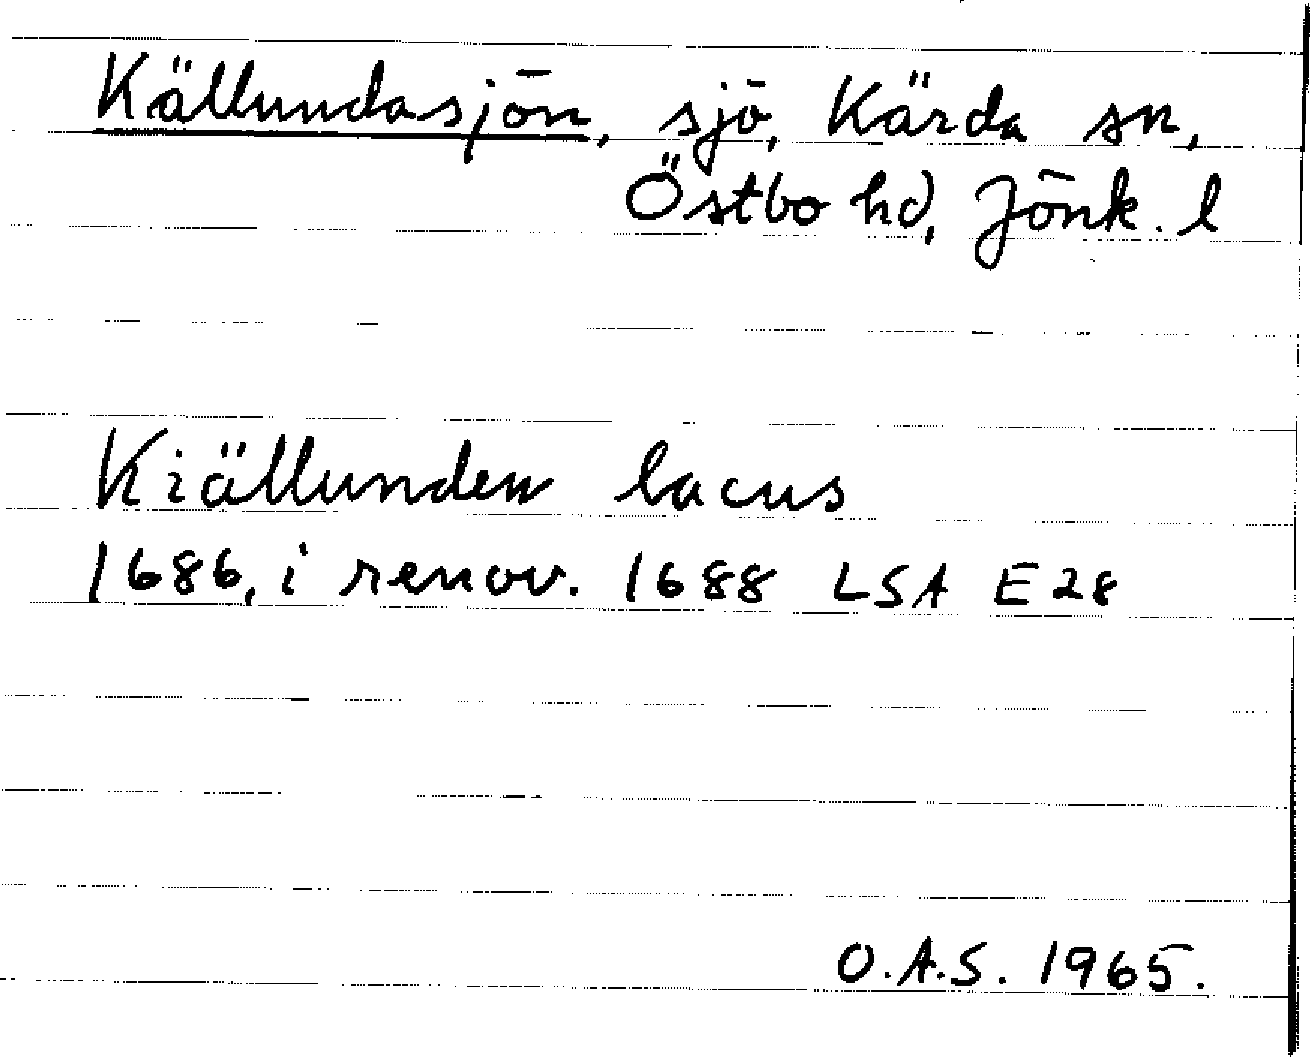 Källundasjön, sjö, Kärda sn,
Östbo hd, Jönk. l
Kiällunden lacus
1686, i renov. 1688 LSA E28
O.A.S. 1965.